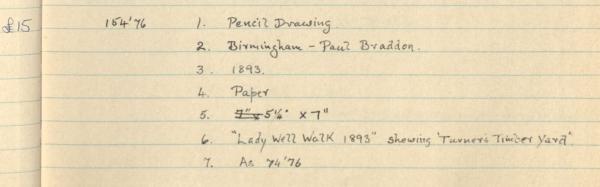 £15 154'76 1. Pencil Drawing
2. Birmingham - Paul Braddon.
3. 1893.
4. Paper
5. 7" x 5½" x 7"
6. "Lady Well Walk 1893" shewing 'Turner's Timber Yard".
7. As 74'76